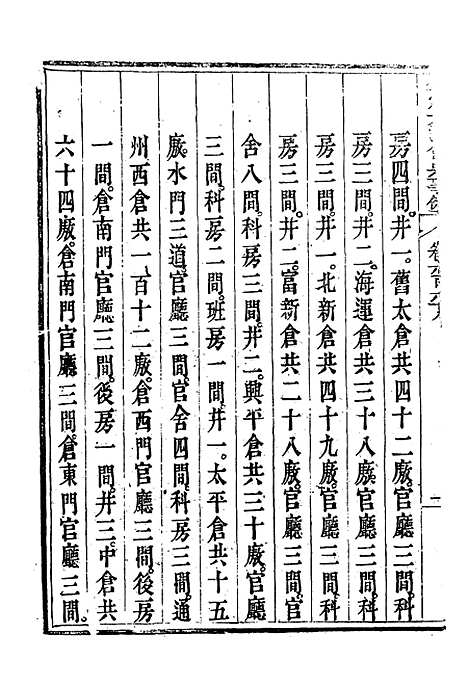 房四間。井一。舊太倉共四十二廒。官廳三間。科
房三間。井二。海運倉共三十八廒。官廳三間。科
房三間。井一。北新倉共四十九廒。官廳三間。科
房三間。井二。富新倉共二十八廒。官廳三間。官
舍八間。科房三間。井二。興平倉共三十廒。官廳
三間。科房二間。班房一間。井一。太平倉共十五
廒。水門三道。官廳三間。官舍四間。科房三間。通
州西倉共一百十二廒。倉西門官廳三間。後房
一間。倉南門官廳三間。後房一間。井三。中倉共
六十四廒。倉南門官廳三間。倉東門官廳三間。